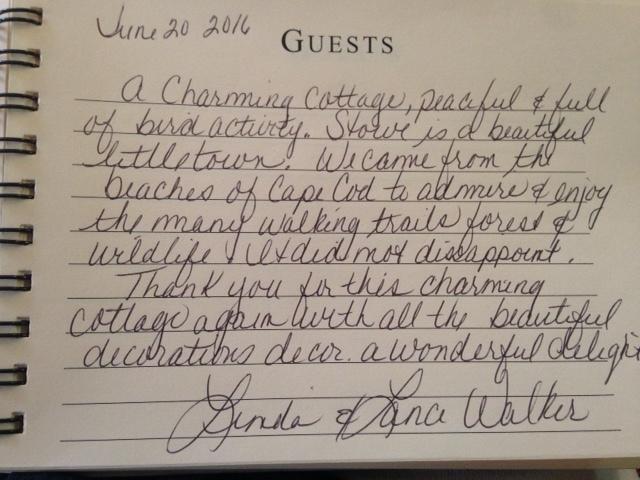 June 20 2016
GUESTS
A Charming Cottage, peaceful & full
of bird activity. Stowe is a beautiful
little town. We came from the
beaches of Cape Cod to admire & enjoy
the many walking trails forest &
wildlife & It did not disappoint.
Thank you for this charming
cottage again with all the beautiful
decorations decor. a wonderful delight
Linda & Lance Walker